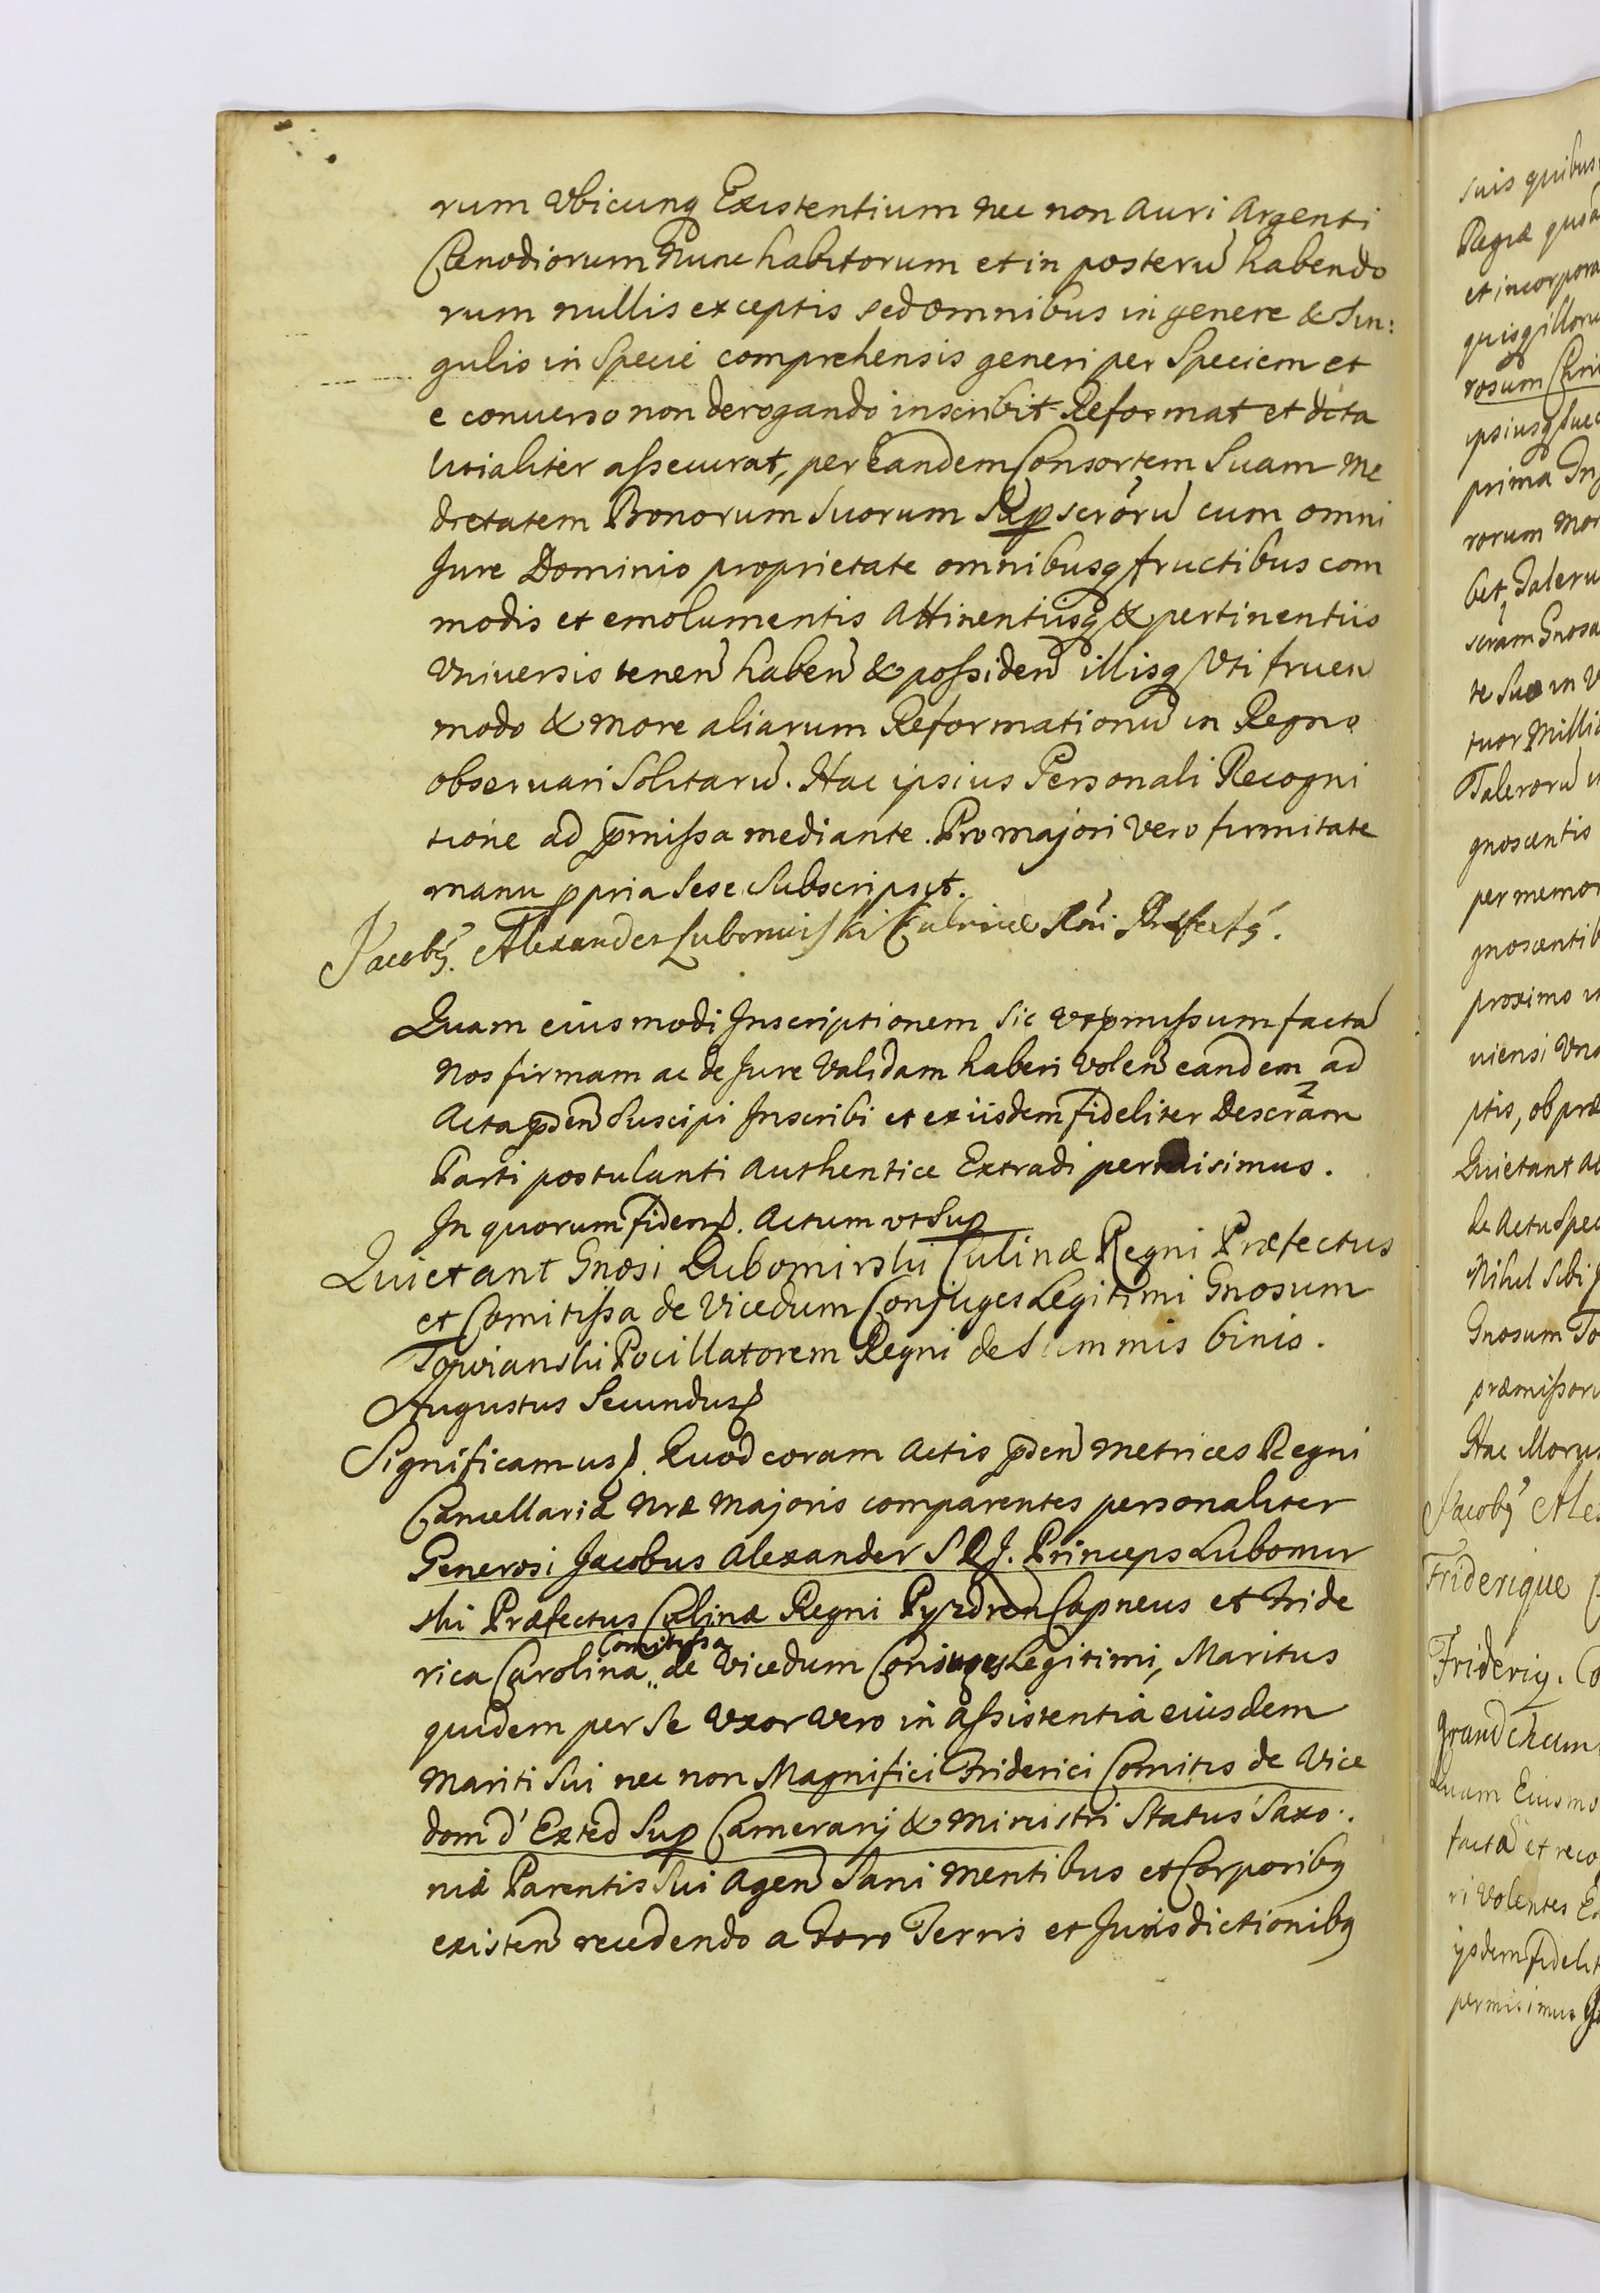 rum Vbicunq Existentium nec non Auri Argenti
Clenodiorum Nunc habitorum et in posterũ habendo
rum nullis exceptis sed omnibus in genere & Sin:
gulis in Specie comprehensis generi per Speciem et
e conuerso non derogando inscribit Reformat et dota
litialiter assecurat, per eandem Consortem Suam Me
dietatem Bonorum Suorum Supscrórũ cum omni
Jure Dominio proprietate omnibusq fructibus com
modis et emolumentis Attinentiisq & pertinentiis
Vniuersis tenen haben & possiden illisq Vti fruen
modo & More aliarum Reformationũ in Regno
obseruari Solitarũ. Hac ipsius Personali Recogni
tione ad pmissa mediante. Pro majori Vero firmitate
manu ppria Sese Subscripsit.
Jacobq. Alexander Lubomirski Culinæ Rni Præfectq.
Quam eiusmodi Inscriptionem Sic Vt pmissum factã
Nos firmam ac de Jure Validam haberi Volen eandem ad
Acta pden Suscipi Inscribi et ex iisdem fideliter Descrãm
Parti postulanti Authentice Extradi permisimus.
In quorum fidem. Actum vt Sup
Quietant Gnosi Lubomirski Culinæ Regni Præfectus
et Comitissa de Vicedum Conjuges Legitimi Gnosum
Towianski Pocillatorem Regni de Summis binis.
Augustus Secundus
Significamus. Quod coram Actis pden Metrices Regni
Cancellariæ Nræ Majoris comparentes personaliter
Generosi Jacobus Alexander S R J. Princeps Lubomir
ski Præfectus Culinæ Regni Pyzdren Capneus et Fride
rica Carolina Comitissa de Vicedum Coniuges Legitimi, Maritus
quidem per Se Vxor Vero in assistentia eiusdem
Mariti Sui nec non Magnifici Friderici Comitis de Vice
dom d' Exted Sup Camerarij & Ministri Status Saxo.
niæ Parentis Sui Agen Sani Mentibus et Corporibq
existen recedendo a Foro Terris et Jurisdictionibq
suis quibus
Regiæ
et incorpora
quisq illoru
rosum
ipsiusq Succ
prima
rorum Mo
bet Taleru
scram Gnosa
te Suo in V
tuor Milli
Talerorũ
gnoscentis
per memo
gnoscentib
proximo
uiensi
ptis, ob præ
Quietant
de Actu Spe
Nihil Sibi
Gnosum To
præmissor
Hac Moru
Jacobq Ale
Friderique
Friderig. Co
grand Cham
Quam Eiusmo
factã et reco
ri Volentes
ijsdem fideli
permisimus